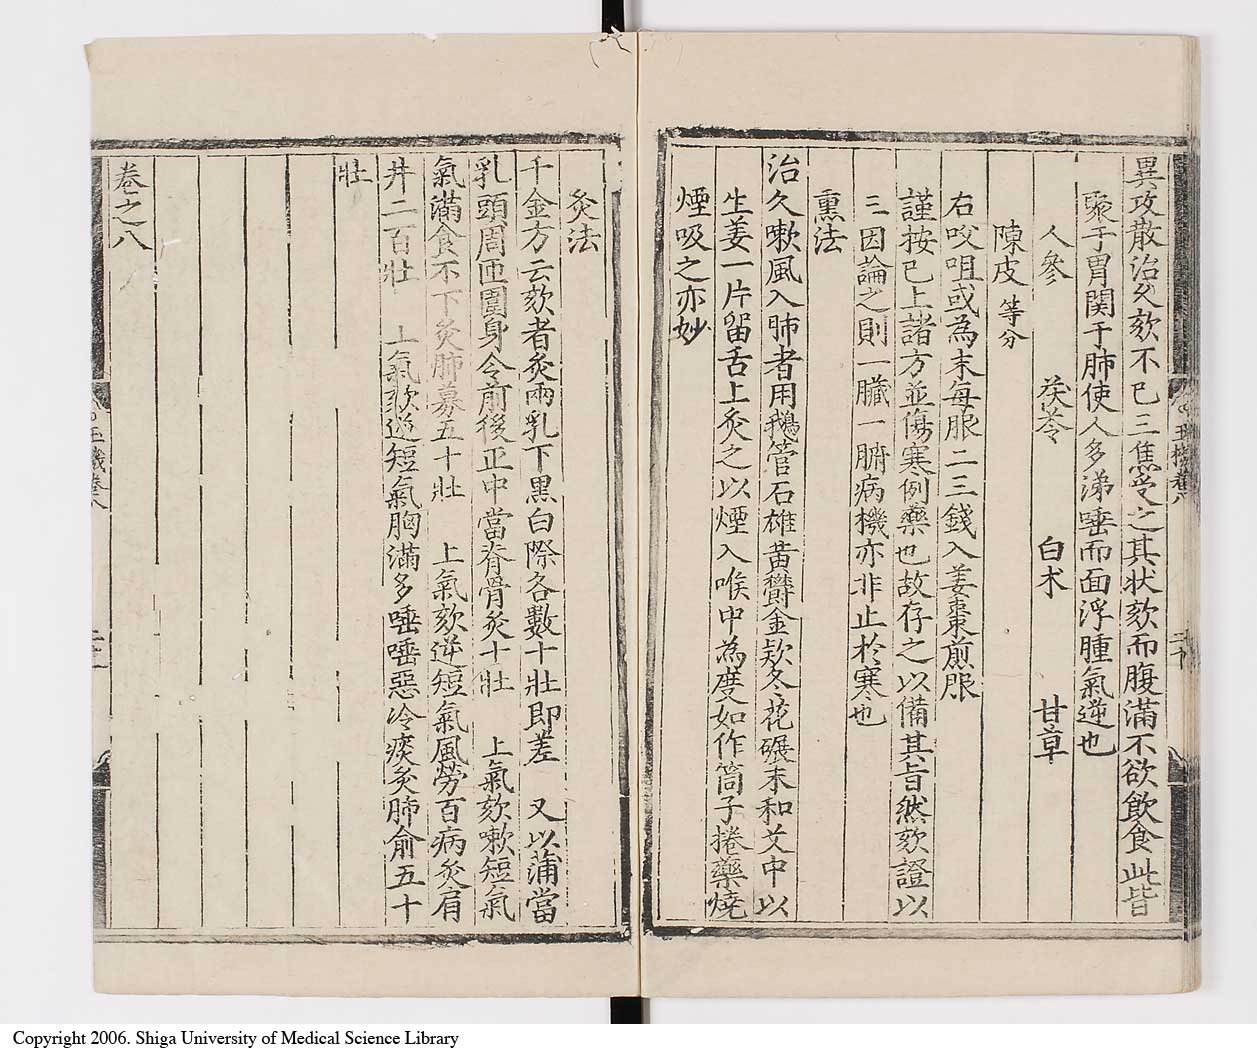 異攻散治久欬不已三焦受之其状欬而腹滿不欲飲食此皆
聚于胃関于肺使人多涕唾而面浮腫氣逆也
人參 茯苓 白术 甘草
陳皮等分
右㕮咀或為末每服二三錢入姜棗煎服
謹按已上諸方並傷寒例藥也故存之以備其旨然欬證以
三因論之則一臓一腑病機亦非止於寒也
熏法
治久嗽風入肺者用鵝管石雄黃欝金欵冬花碾末和艾中以
生姜一片留舌上灸之以煙入喉中為度如作筒子捲藥燒
煙吸之亦妙
灸法
千金方云欬者灸兩乳下黑白際各數十壯即差 又以蒲當
乳頭周匝圍身令前後正中當脊骨灸十壯 上氣欬嗽短氣
氣滿食不下灸肺募五十壯 上氣欬逆短氣風勞百病灸肩
井二百壯 上氣欬逆短氣胸滿多唾唾惡冷痰灸肺俞五十
壯
卷之八
Copyright 2006. Shiga University of Medical Science Library